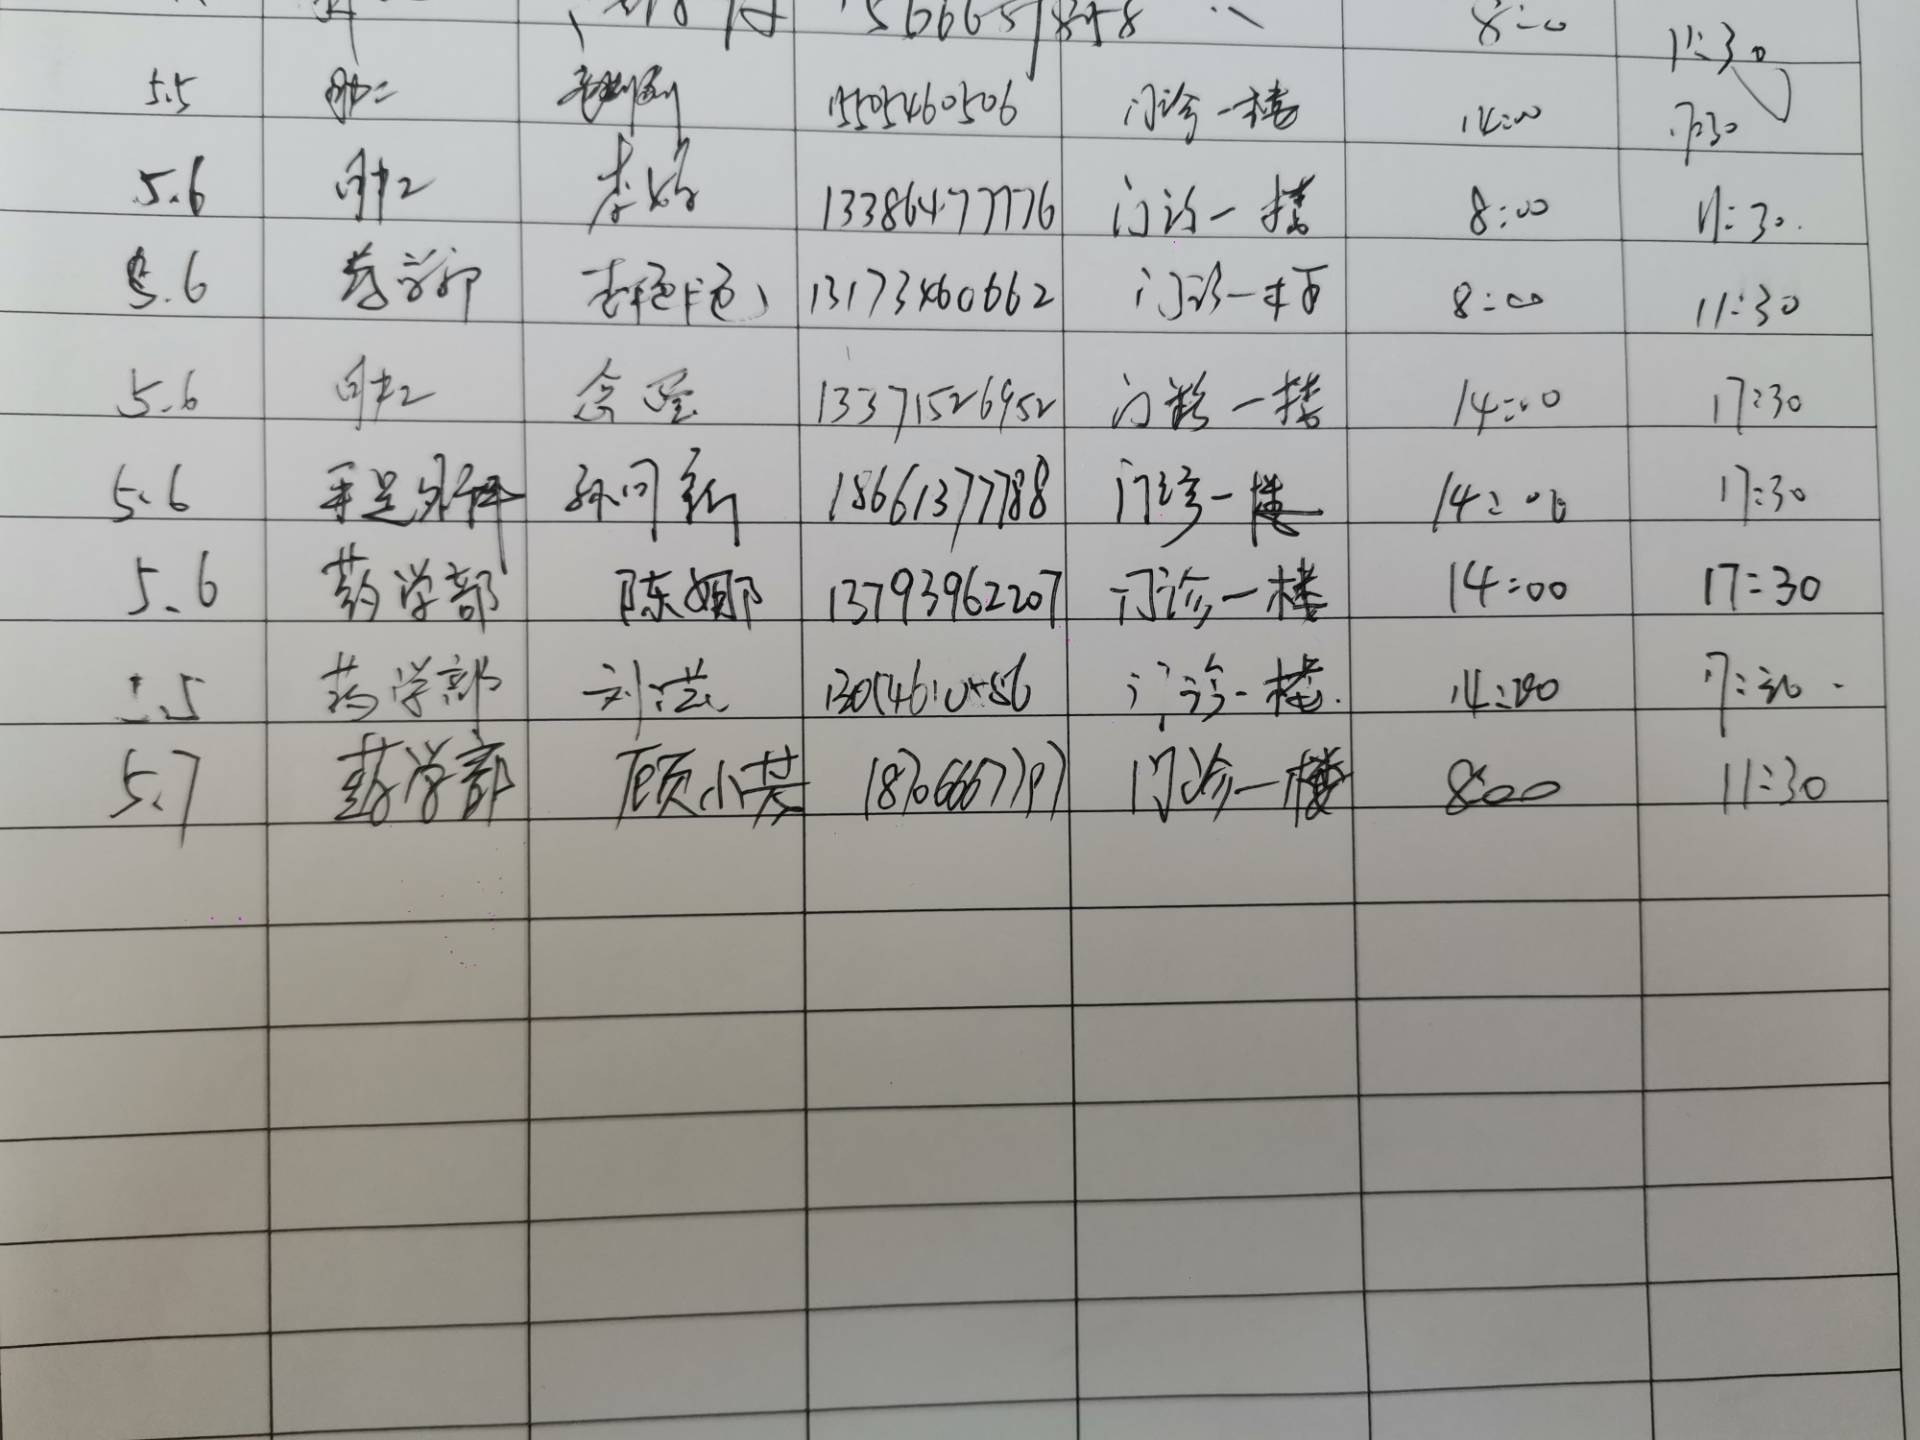 8:00 11:30
5.5 肿二 15505460506 门诊一楼 14:00 17:30
5.6 肿2 李 13386477776 门诊一楼 8:00 11:30.
5.6 药学部 李艳艳 13173460662 门诊一楼 8:00 11:30
5.6 肿2 13371526952 门诊一楼 14:00 17:30
5.6 手足外科 孙同新 18661377788 门诊一楼 14:00 17:30
5.6 药学部 陈娜 13793962207 门诊一楼 14:00 17:30
5.5 药学部 刘 门诊一楼. 14:00 17:30
5.7 药学部 顾小芸 门诊一楼 8:00 11:30